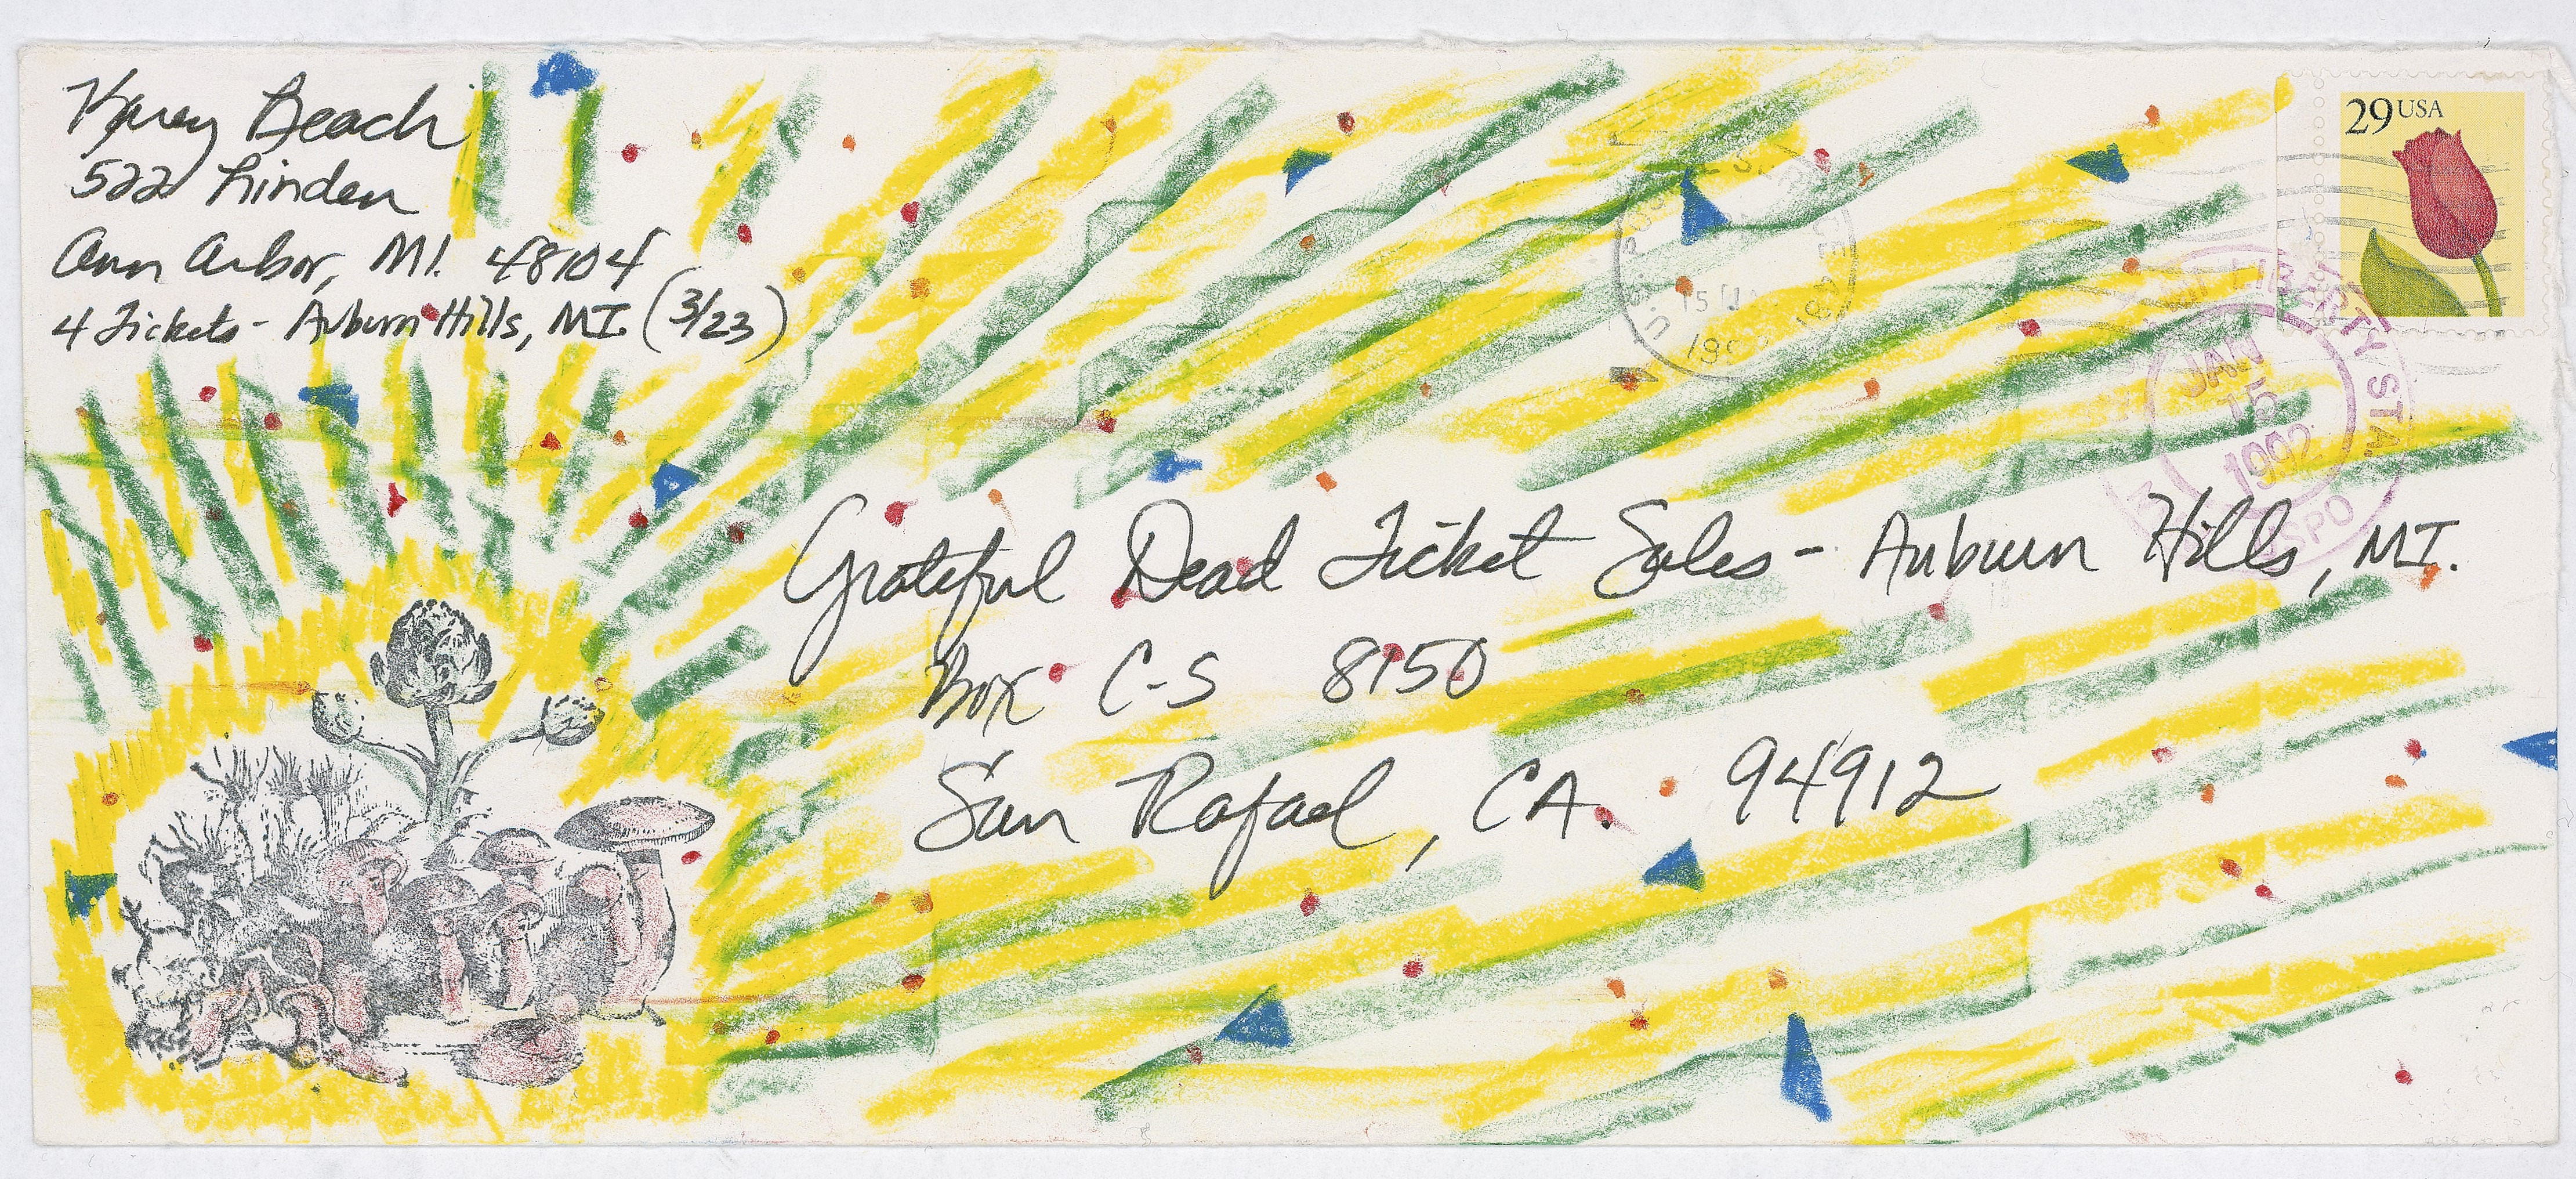 Karey Beach
522 Linden
Ann Arbor, MI. 48104
4 Tickets - Auburn Hills, MI. (3/23)
29 USA
LIBERTY STA.
JAN
15
1992
USPO
Grateful Dead Ticket Sales - Auburn Hills, MI.
Box C-S 8150
San Rafael, CA. 94912